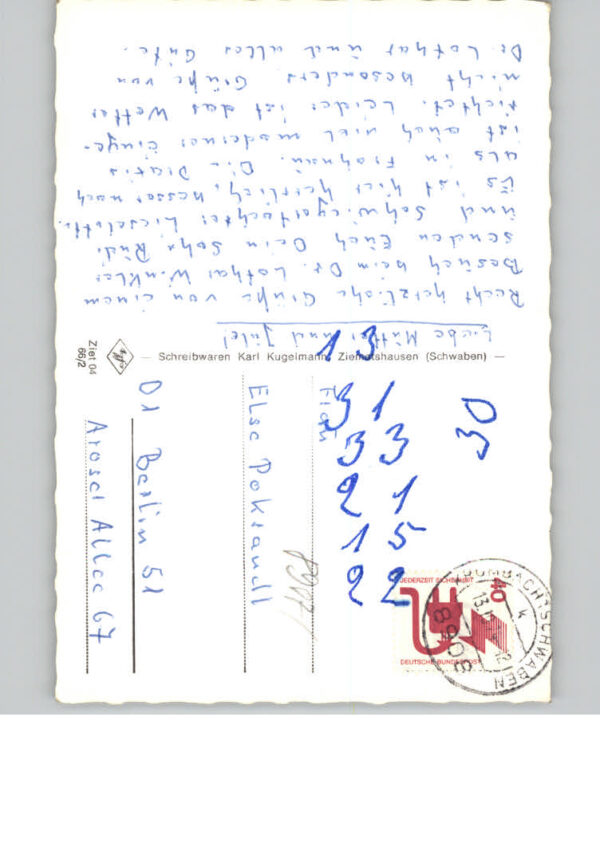 Liebe Mutter und Jule!
Recht herzliche Grüße von einem
Besuch beim Dr. Lothar Winkler
senden Euch Dein Sohn Rudi
und Schwiegertochter Lieselotte.
Es ist hier herrlich, besser noch
als in Frohnau. Die Praxis
ist auch viel moderner einge-
richtet. Leider ist das Wetter
nicht besonders. Grüße von
Dr. Lothar und alles Gute.
Schreibwaren Karl Kugelmann, Ziemetshausen (Schwaben)
Ziet 04
66/2
Frau
Else Pokrandt
D1 Berlin 51
Aroser Allee 67
13
31
33
21
15
22
30
JEDERZEIT SICHERHEIT
40
DEUTSCHE BUNDESPOST
8908